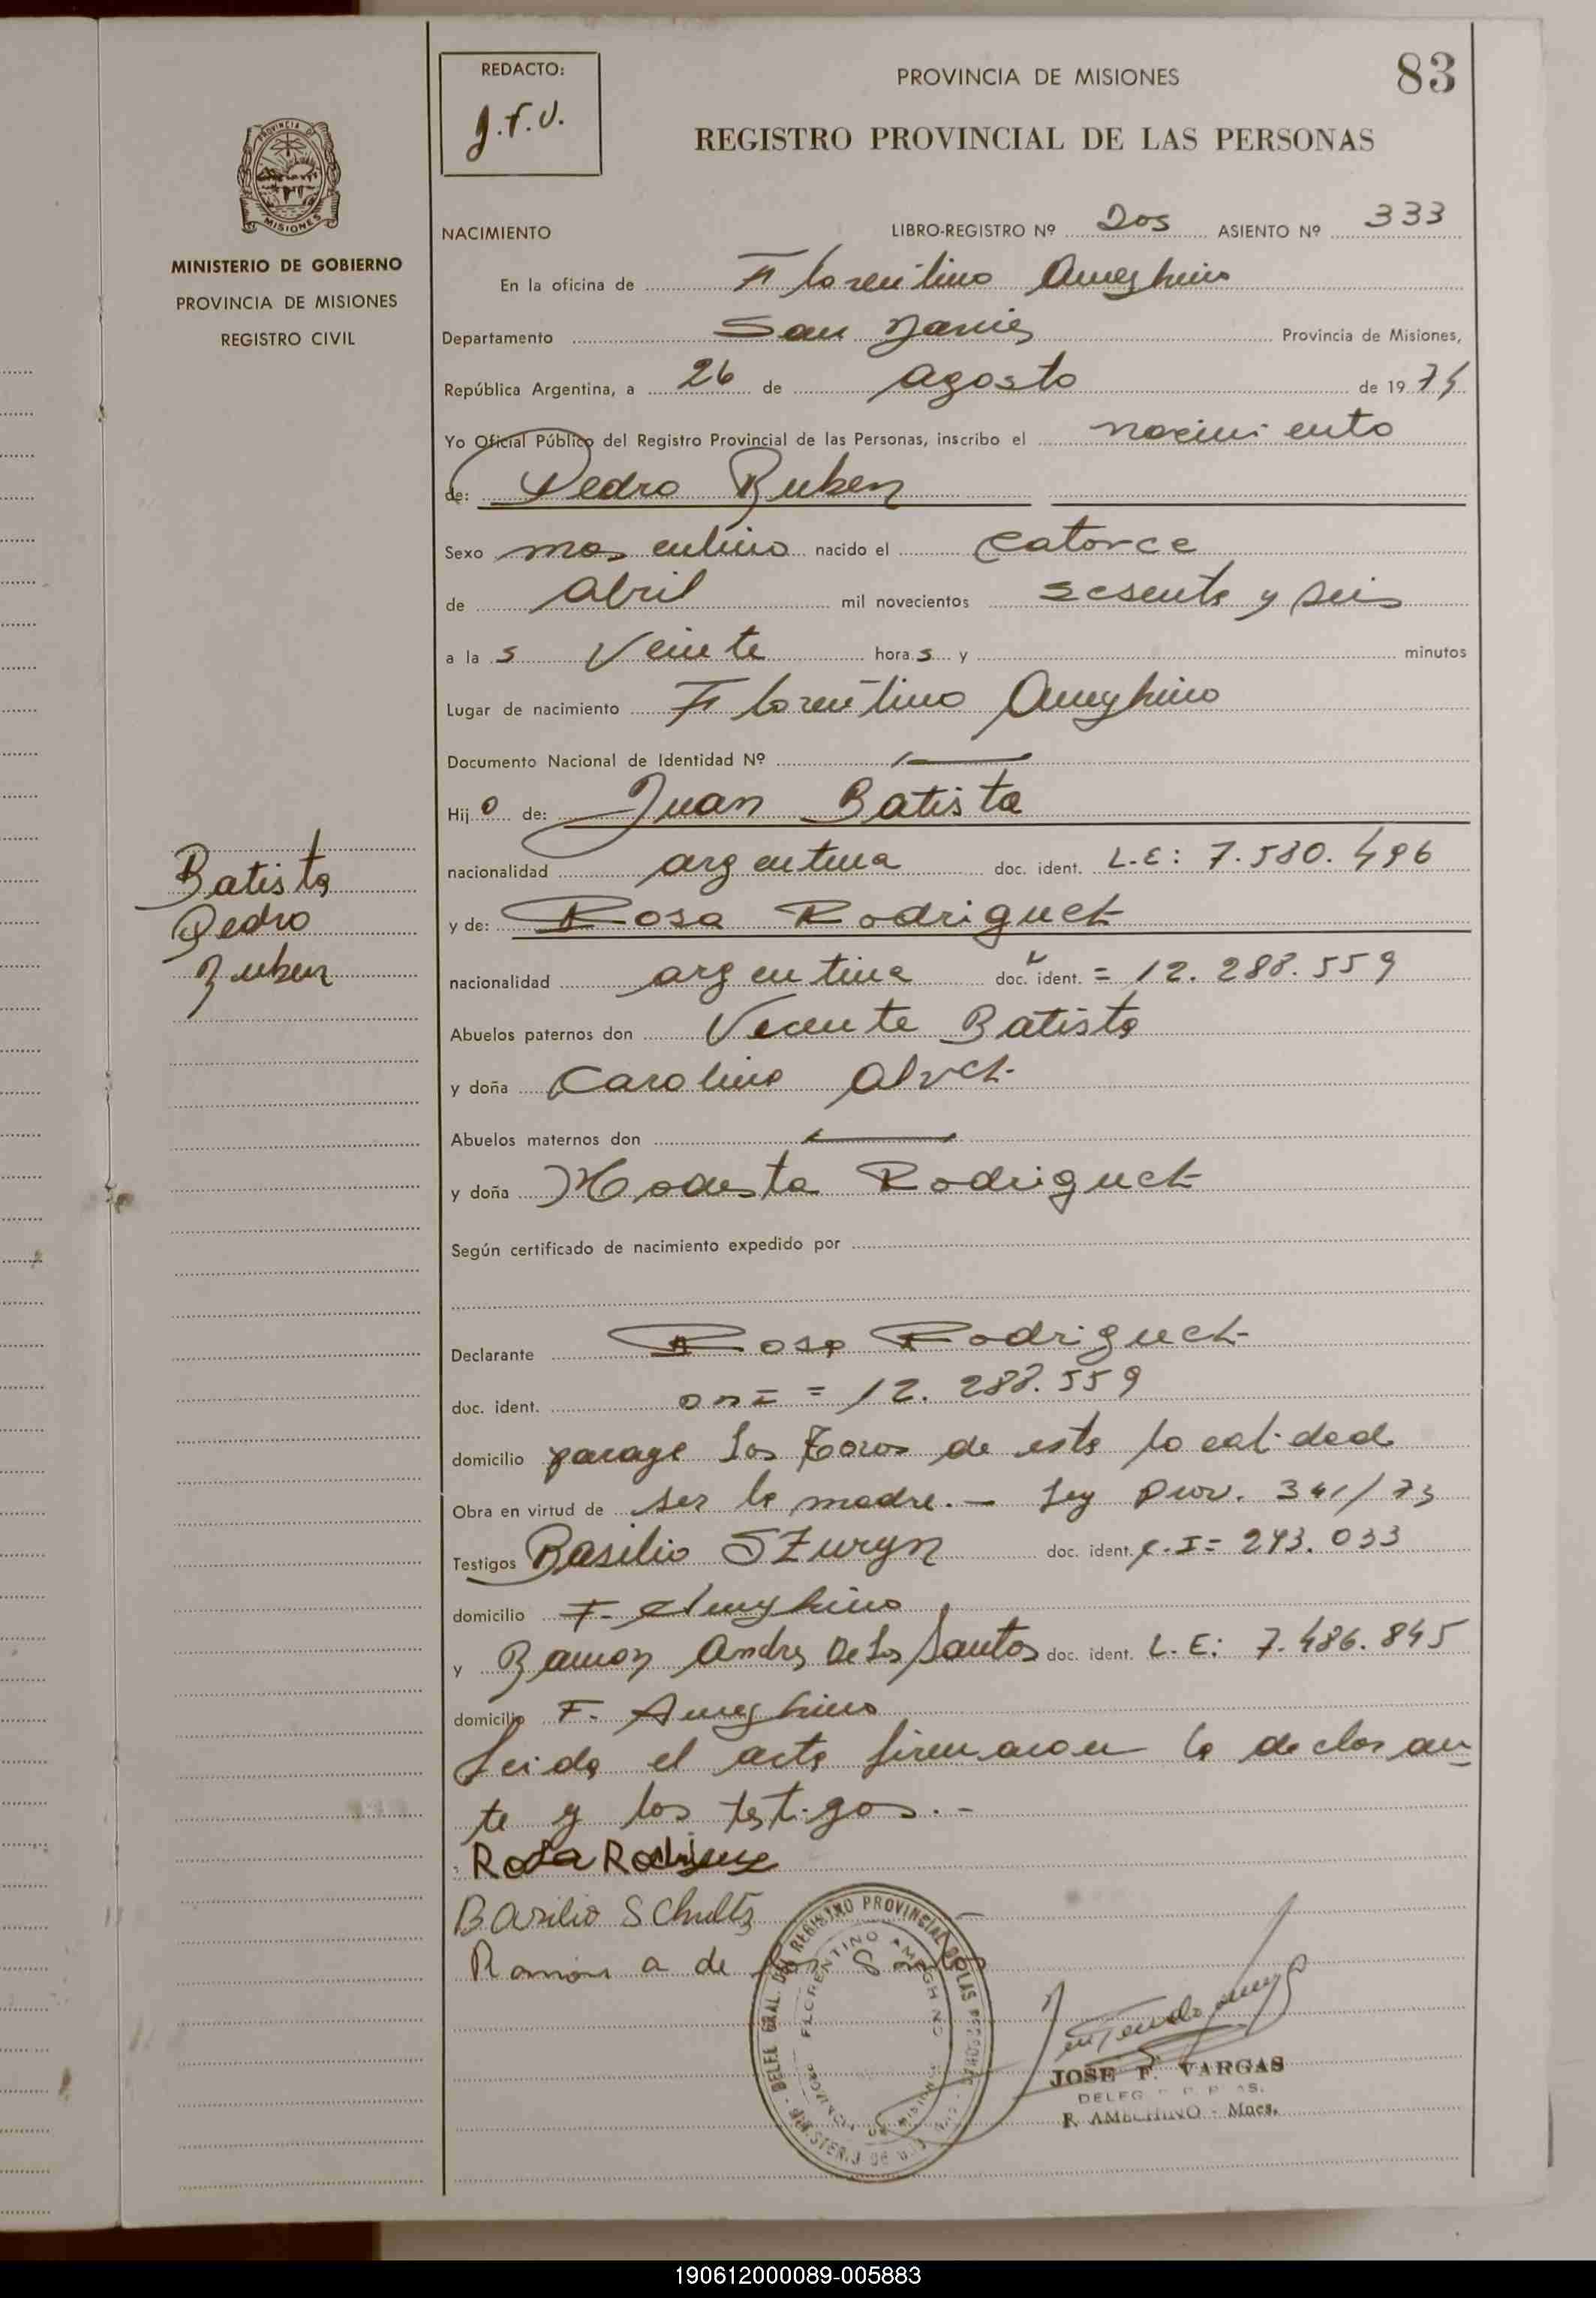 REDACTO:
J.F.V.
PROVINCIA DE MISIONES
83
REGISTRO PROVINCIAL DE LAS PERSONAS
PROVINCIA DE MISIONES
MINISTERIO DE GOBIERNO
PROVINCIA DE MISIONES
REGISTRO CIVIL
NACIMIENTO LIBRO-REGISTRO Nº Dos ASIENTO Nº 333
En la oficina de Florentino Ameghino
Departamento San Javier Provincia de Misiones,
República Argentina, a 26 de agosto de 1974
Yo Oficial Público del Registro Provincial de las Personas, inscribo el nacimiento
de: Pedro Ruben
Sexo masculino nacido el catorce
de abril mil novecientos sesenta y seis
a la s veinte hora s y minutos
Lugar de nacimiento Florentino Ameghino
Documento Nacional de Identidad Nº
Hij o de: Juan Batista
nacionalidad argentina doc. ident. L.E: 7.580.496
Batista
Pedro
Ruben
y de: Rosa Rodriguez
nacionalidad argentina doc. ident. = 12.288.559
Abuelos paternos don Vicente Batista
y doña Carolina Alvez
Abuelos maternos don
y doña Modesta Rodriguez
Según certificado de nacimiento expedido por
Declarante Rosa Rodriguez
doc. ident. DNI = 12.288.559
domicilio parage Los Toros de esta localidad
Obra en virtud de ser la madre.- Ley Prov. 341/73
Testigos Basilio SZuryn doc. ident. C.I= 243.033
domicilio F. Ameghino
y Ramon Andres De Los Santos doc. ident. L.E: 7.486.845
domicilio F. Ameghino
Leida el acta firmaron la declaran
te y los testigos.-
Rosa Rodriguez
Basilio Schultz
Ramon a de los Santos
DELEG. GRAL. DEL REGISTRO PROVINCIAL DE LAS PERSONAS
FLORENTINO AMEGHINO
PROVINCIA DE MISIONES
JOSE F. VARGAS
F. AMEGHINO - Mnes.
190612000089-005883